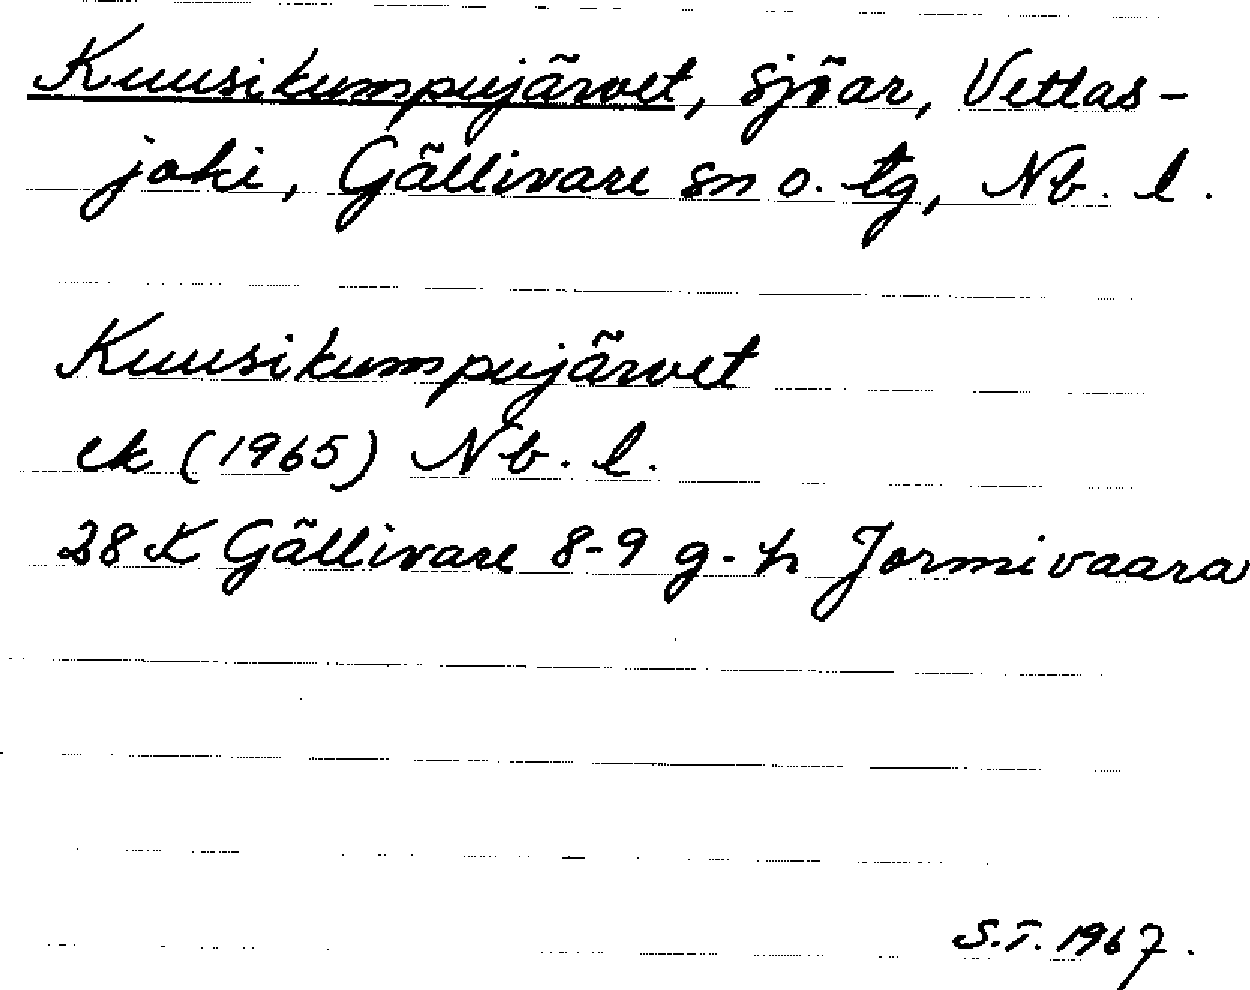 Kuusikumpujärvet, sjöar, Vettas-
joki, Gällivare sn o. tg, Nb. l.
Kuusikumpujärvet
ek (1965) Nb. l.
28 K Gällivare 8-9 g-h Jormivaara
S.T. 1967.